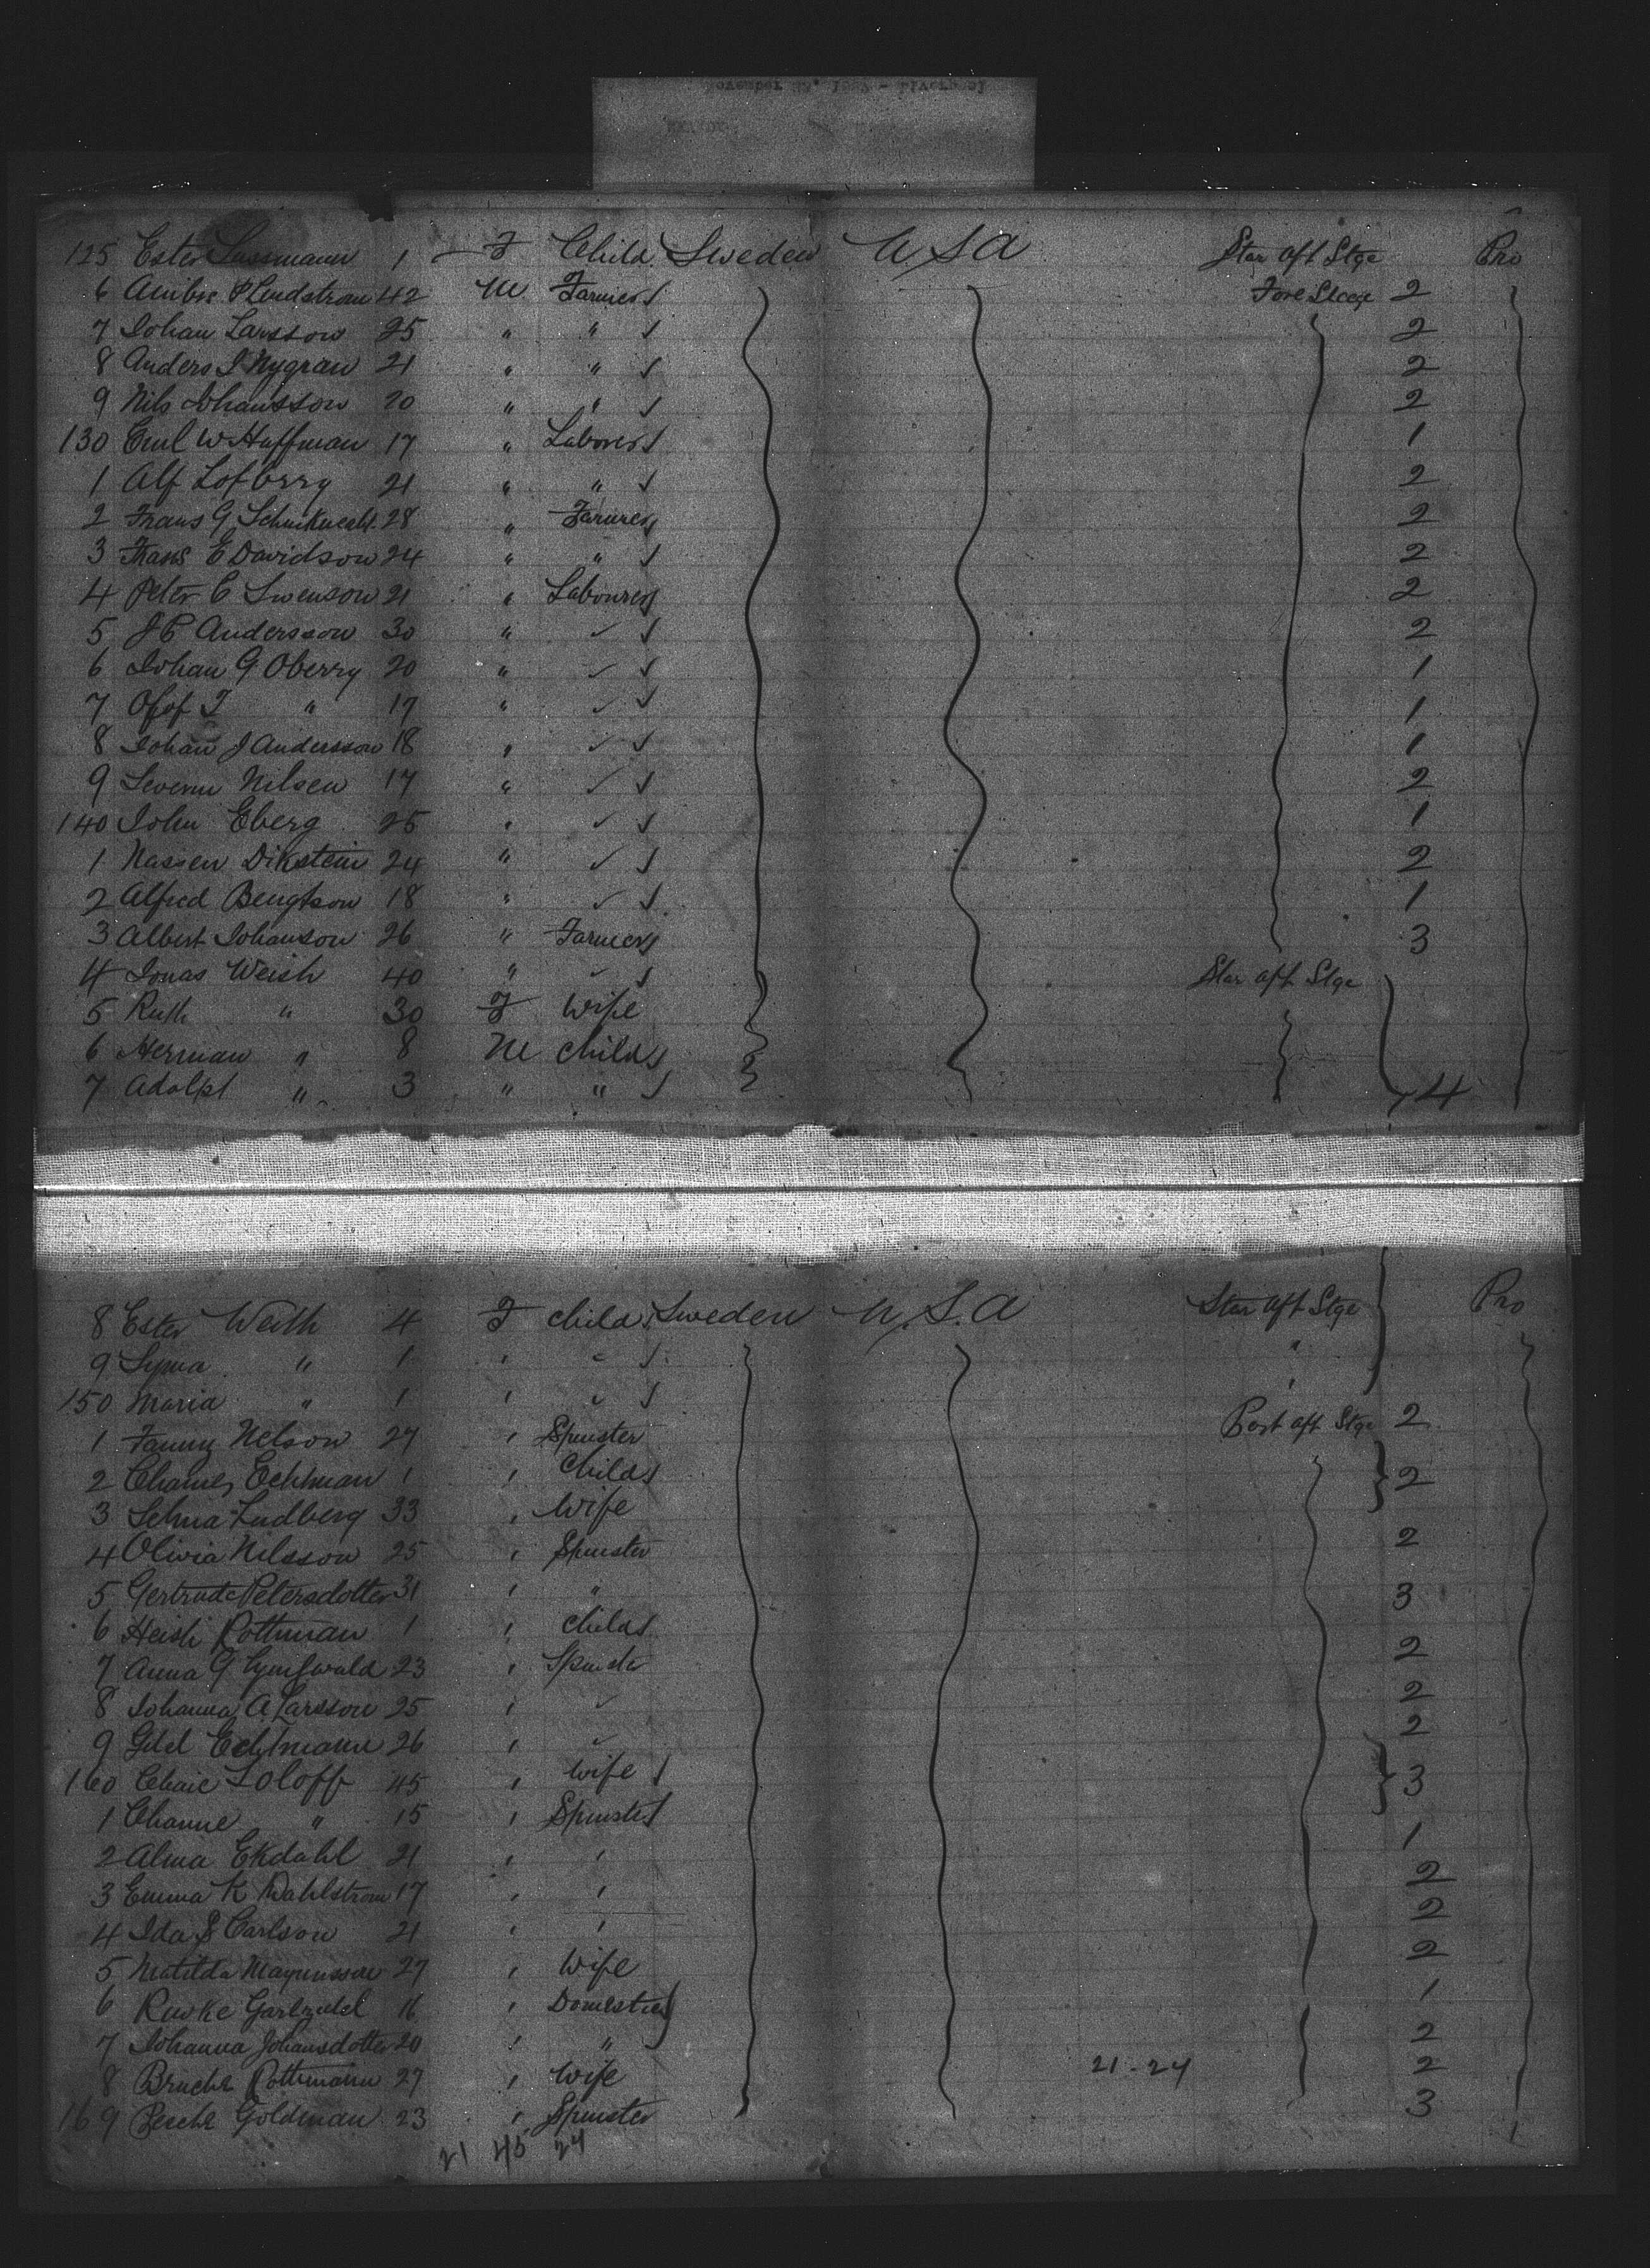 125 Ester Sussmann 1 F Child Sweden U S A Star aft Stge Pro
6 P Lindstrom 42 M Farmer Fore Steege 2
7 Johan Larsson 25 " " 2
8 Anders J Nygran 21 " " 2
9 Nils Johansson 20 " " 2
130 Emil W Huffman 17 " Laborer 1
1 Alf Lofberry 21 " " 2
2 Frans G 28 " Farmer 2
3 Frans E Davidson 24 " " 2
4 Peter C Swenson 21 " Labourer 2
5 J P Andersson 30 " " 2
6 Johan G Oberry 20 " " 1
7 Olof T " 17 " " 1
8 Johan J Andersson 18 " " 1
9 Severin Nilsen 17 " " 2
140 John Eberg 25 " " 1
1 Nassen Dikstein 24 " " 2
2 Alfred Bengtson 18 " " 1
3 Albert Johanson 26 " Farmer 3
4 Jonas Weish 40 " " Star aft Stge
5 Ruth " 30 F Wife
6 Herman " 8 M Child
7 Adolph " 3 " " 4
8 Ester Weith 4 F child Sweden U.S.A Star aft Stge Pro
9 Syma " 1 " " "
150 Maria " 1 " " "
1 Fanny Nelson 27 " Spinster Port aft Stge 2
2 Echtman 1 " Child 2
3 Selma Lindberg 33 " Wife
4 Olivia Nilsson 25 " Spinster 2
5 Gertrude Petersdotter 31 " " 3
6 Heish Rothman 1 " child
7 Anna G 23 " Spinster 2
8 Johanna A Larsson 25 " " 2
9 Gitel Echtmann 26 " " 2
160 Chaie Soloff 45 " Wife 3
1 Channe " 15 " Spinster
2 Alma Ekdahl 21 " " 1
3 Emma K Wahlstrom 17 " " 2
4 Ida S Carlson 21 " " 2
5 Matilda Magnusson 27 " Wife 2
6 Rewke 16 " Domestic 1
7 Johanna Johansdotter 20 " " 2
8 Bruche Rothmann 27 " Wife 21-24 2
169 Pesche Goldman 23 " Spinster 3
21 45 24